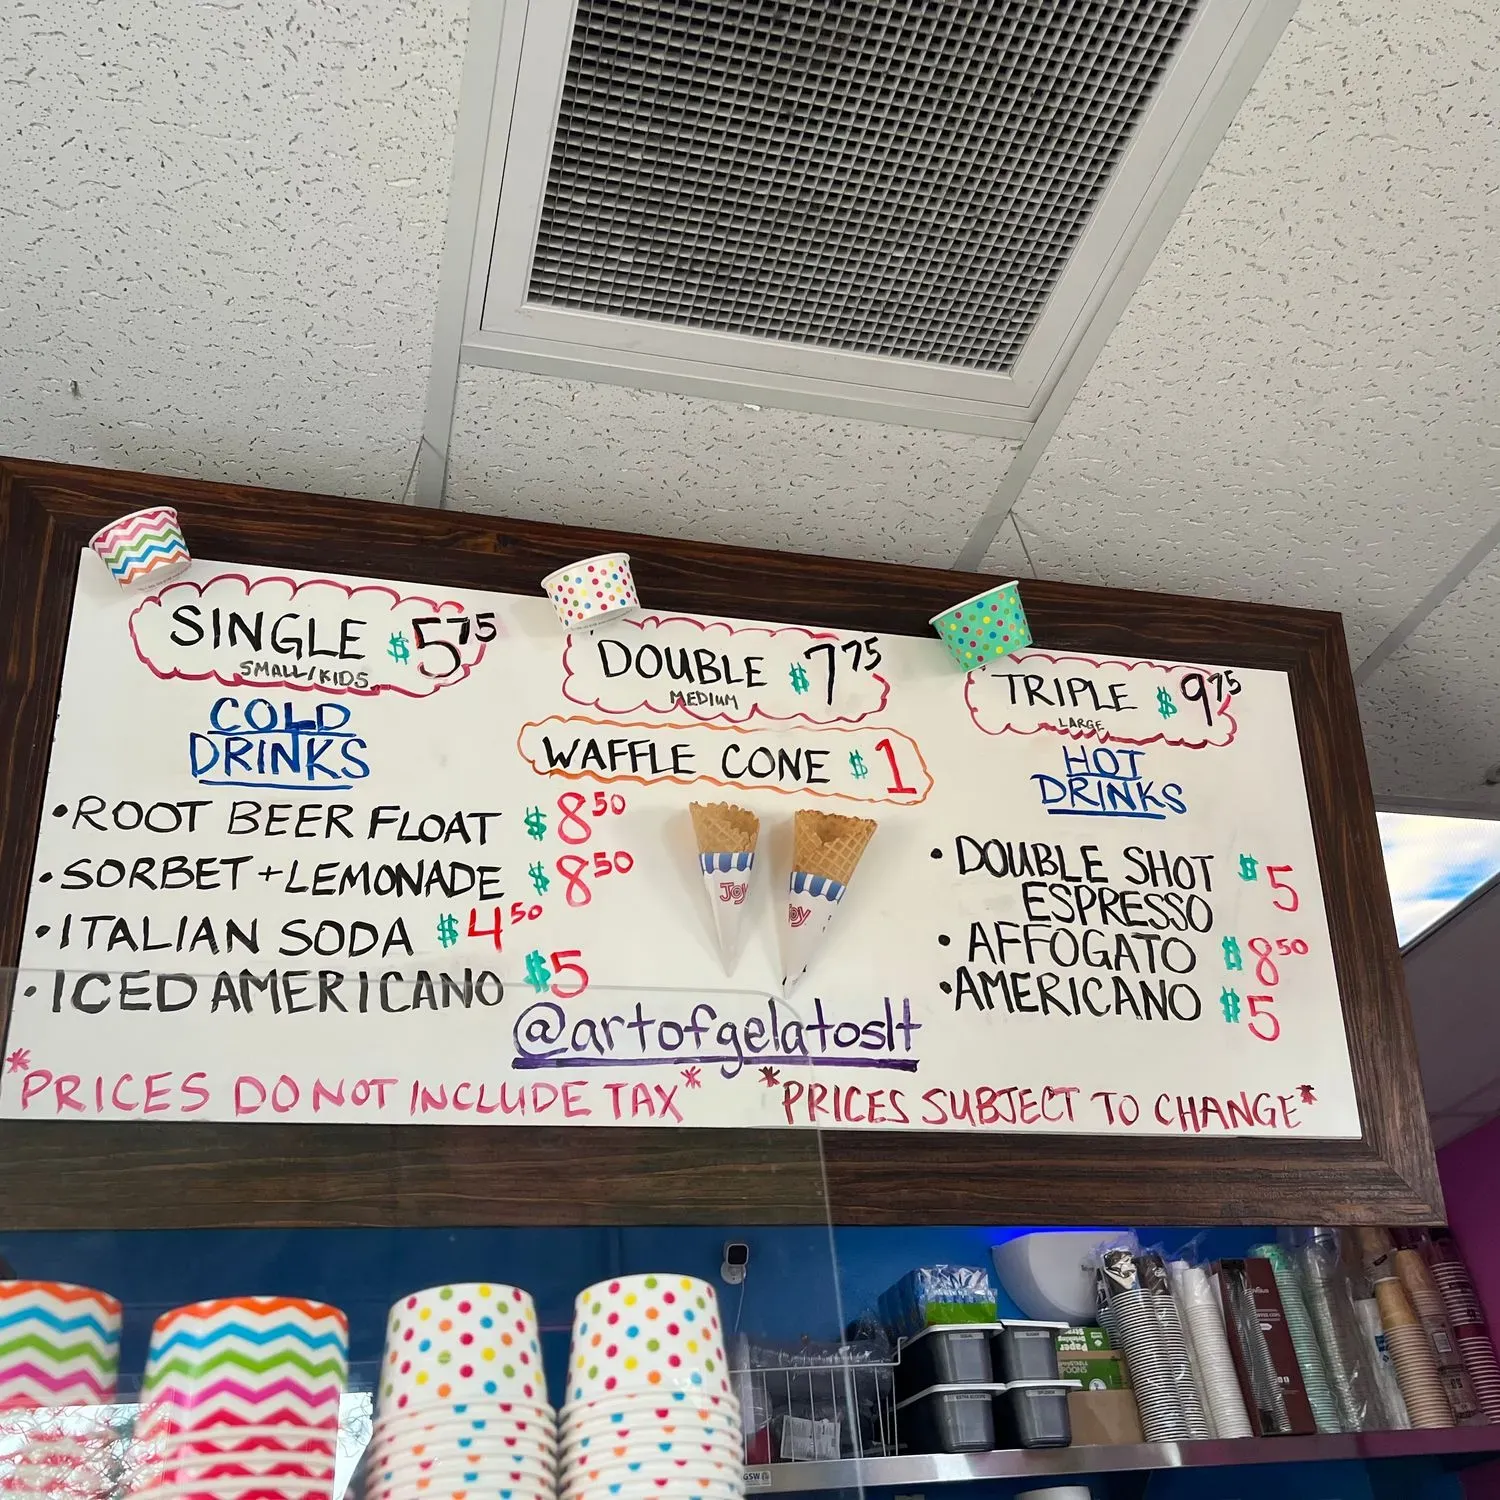 SINGLE $5.75
SMALL/KIDS
DOUBLE $7.75
MEDIUM
TRIPLE $9.75
LARGE
WAFFLE CONE $1
COLD
DRINKS
• ROOT BEER FLOAT $8.50
• SORBET + LEMONADE $8.50
• ITALIAN SODA $4.50
• ICED AMERICANO $5
JOY
Joy
HOT
DRINKS
• DOUBLE SHOT $5
ESPRESSO
• AFFOGATO $8.50
• AMERICANO $5
@artofgelatoslt
*PRICES DO NOT INCLUDE TAX*
*PRICES SUBJECT TO CHANGE*